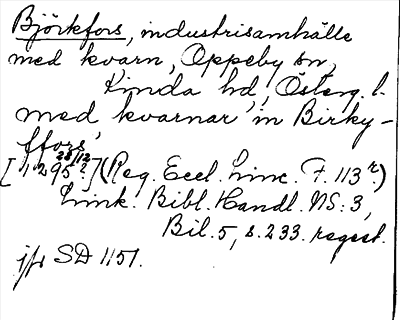 Björkfors, industrisamhälle
med kvarn, Oppeby sn,
Kinda hd, Österg. l.
"med kvarnar in Birky-
ffors"
[1295 28/12?] (Reg. Eccl. Linc. F. 113 r.)
Link. Bibl. Handl. NS: 3,
Bil. 5, s. 233. regest.
jfr SD 1151.